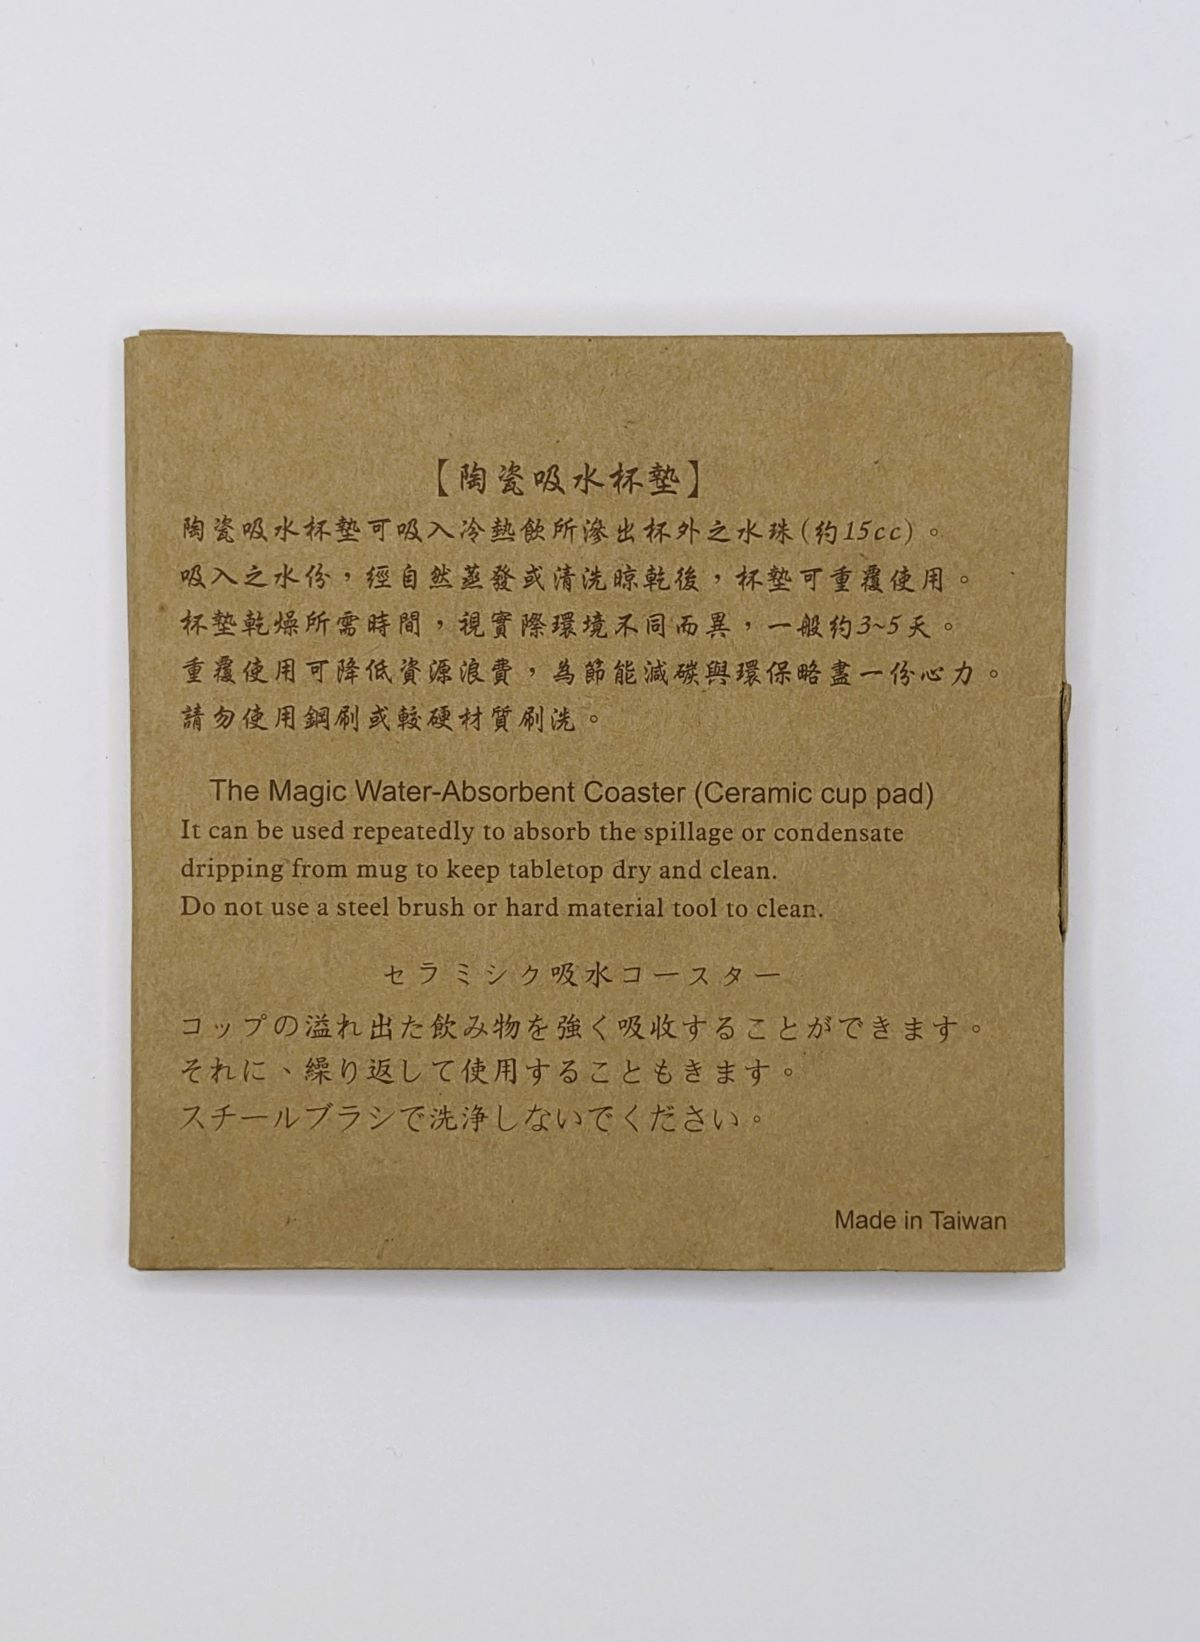 【陶瓷吸水杯墊】
陶瓷吸水杯墊可吸入冷熱飲所滲出杯外之水珠(約15cc)。
吸入之水份，經自然蒸發或清洗晾乾後，杯墊可重覆使用。
杯墊乾燥所需時間，視實際環境不同而異，一般約3~5天。
重覆使用可降低資源浪費，為節能減碳與環保略盡一份心力。
請勿使用鋼刷或較硬材質刷洗。
The Magic Water-Absorbent Coaster (Ceramic cup pad)
It can be used repeatedly to absorb the spillage or condensate
dripping from mug to keep tabletop dry and clean.
Do not use a steel brush or hard material tool to clean.
セラミシク吸水コースター
コップの溢れ出た飲み物を強く吸收することができます。
それに、繰り返して使用することもきます。
スチールブラシで洗浄しないでください。
Made in Taiwan